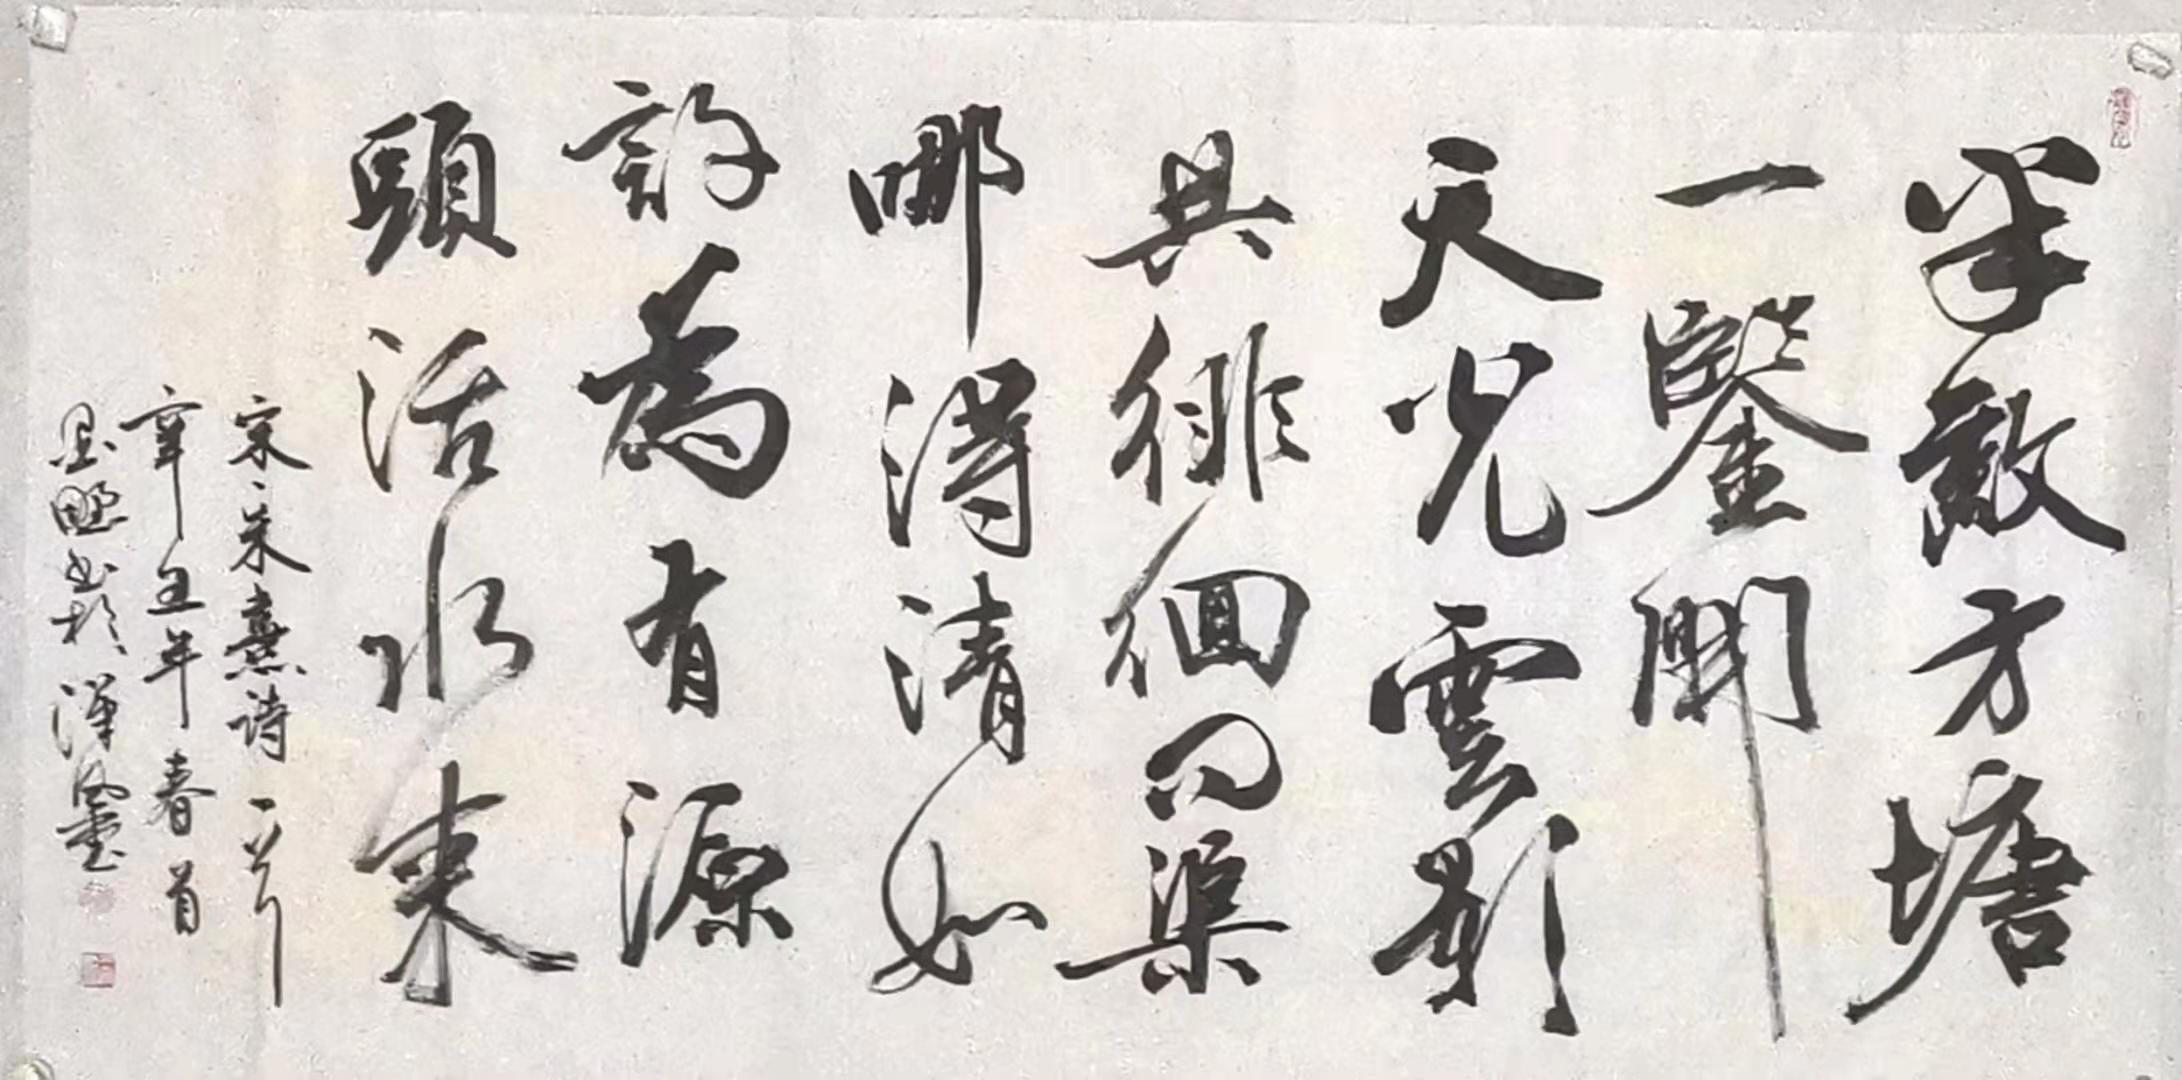 半畝方塘
一鑒開
天光雲影
共徘徊問渠
哪得清如
許為有源
頭活水来
宋·朱熹诗一首
辛丑年春首
书於